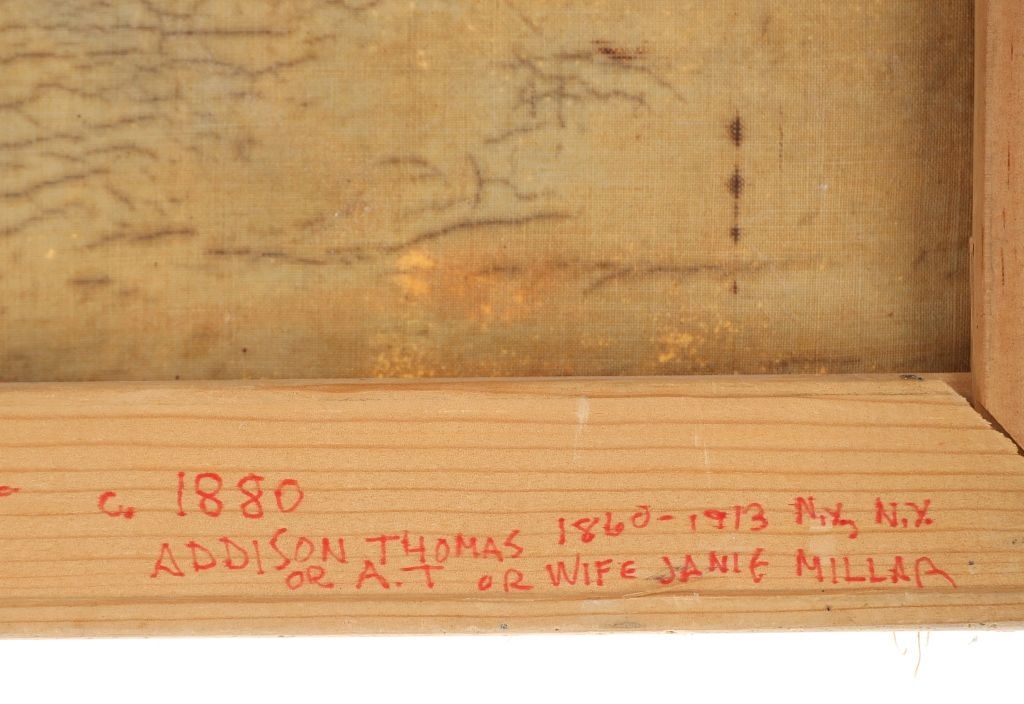 c. 1880
ADDISON THOMAS 1860-1913 N.Y., N.Y.
OR A.T OR WIFE JANIE MILLAR